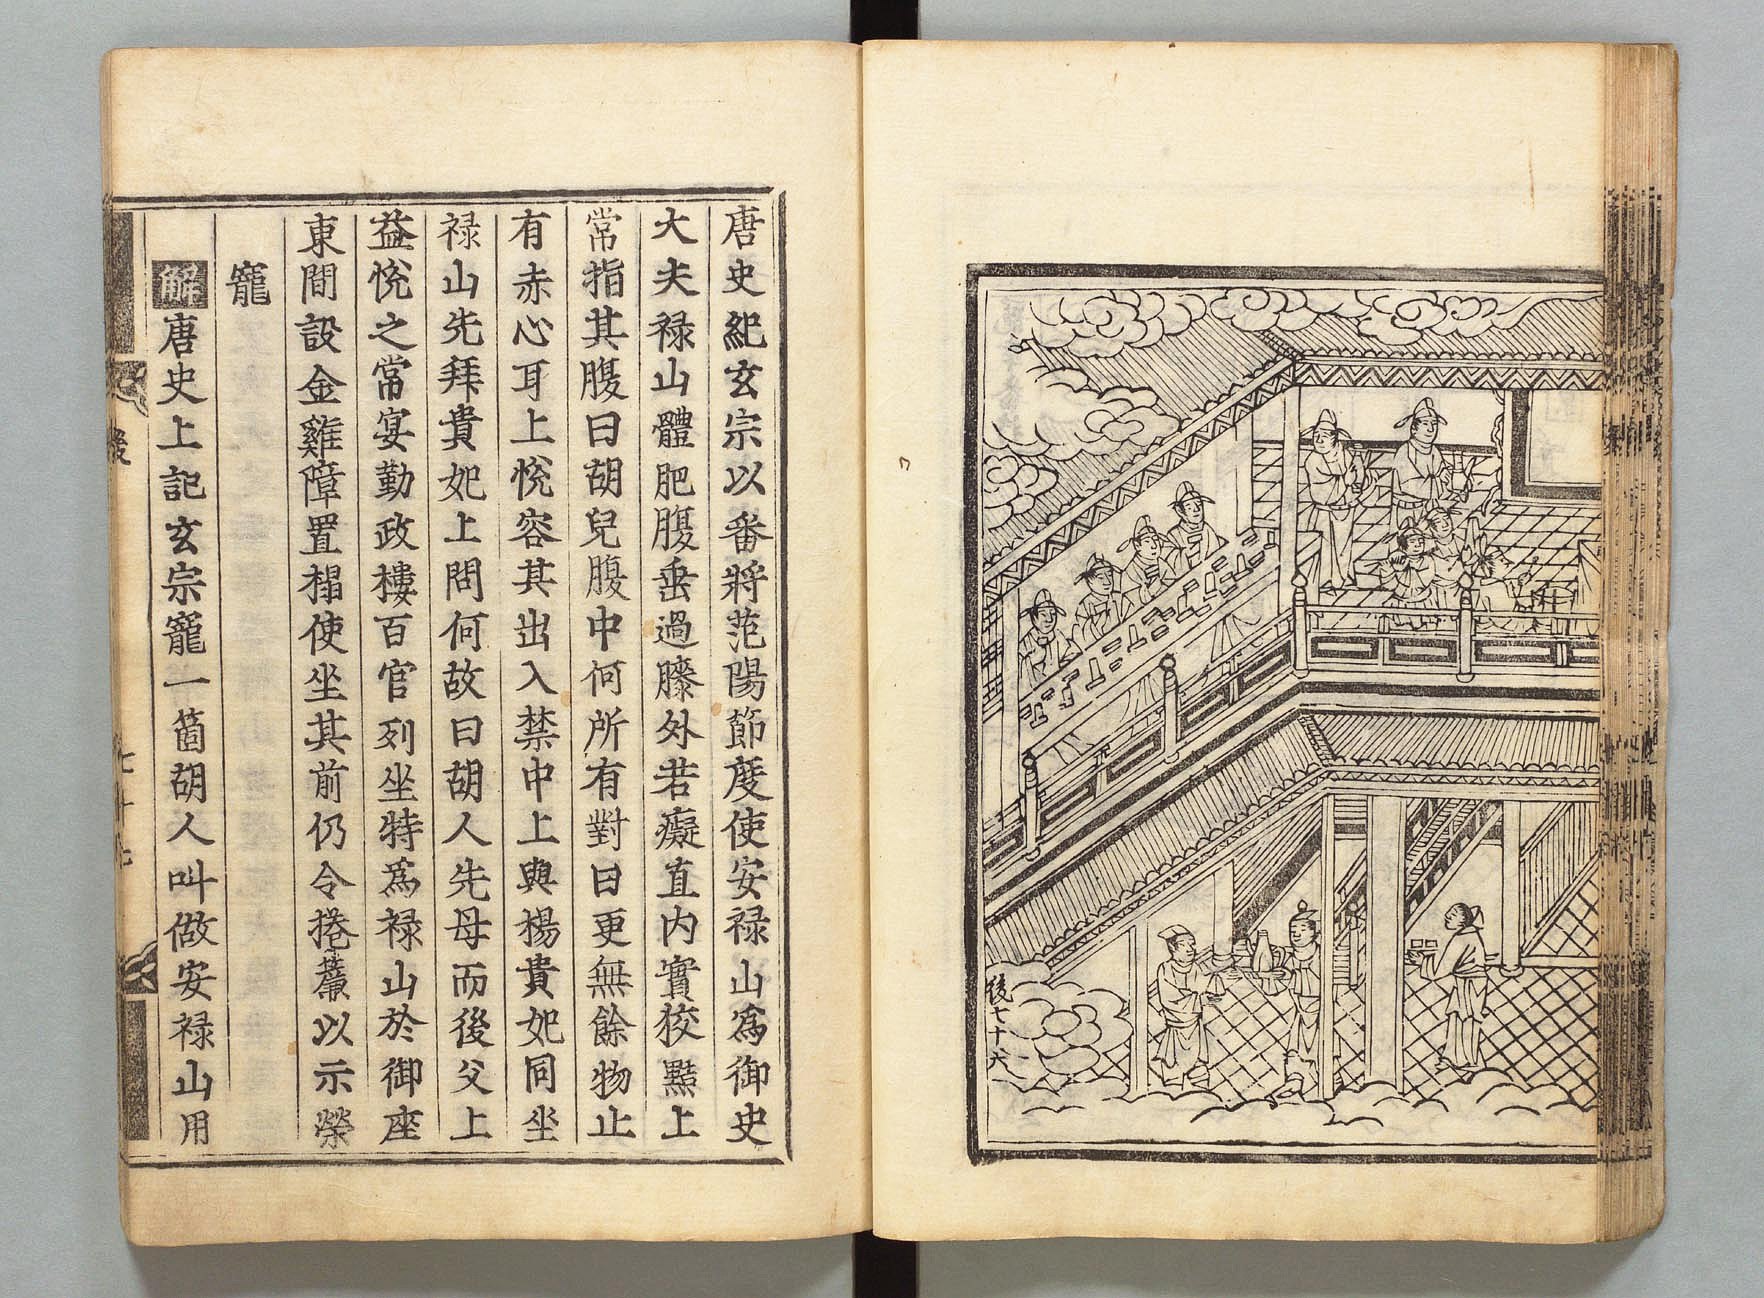 後七十六
唐史紀玄宗以番將范陽節度使安禄山為御史
大夫禄山體肥腹垂過膝外若癡直内實狡黠上
常指其腹曰胡兒腹中何所有對曰更無餘物止
有赤心耳上悅容其出入禁中上與楊貴妃同坐
禄山先拜貴妃上問何故曰胡人先母而後父上
益悅之常宴勤政樓百官列坐特為禄山於御座
東間設金雞障置榻使坐其前仍令捲簾以示榮
寵
解唐史上記玄宗寵一箇胡人叫做安禄山用
後
七十七